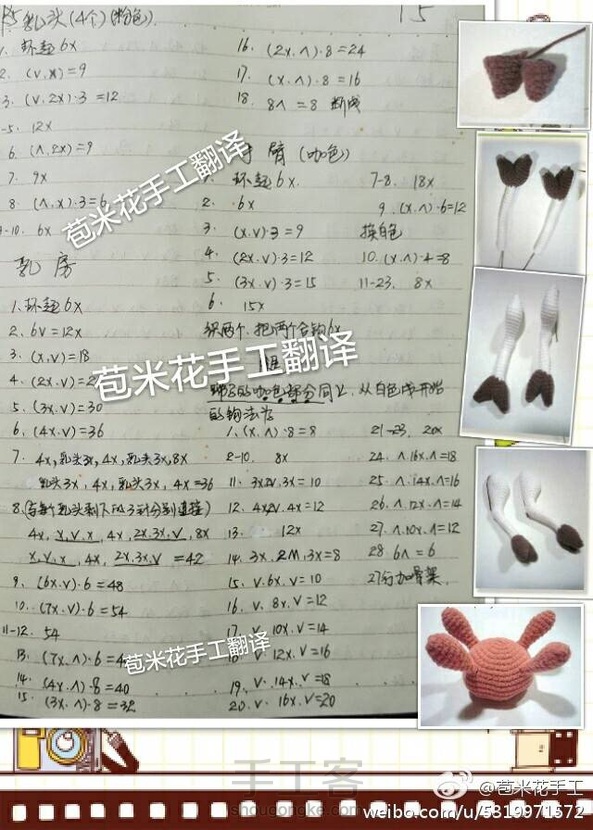 乳头(4个)(粉色)
15
1. 环起6x
2. (v,x)=9
3. (v.2x)·3=12
-5. 12x
6. (∧.2x)=9
7. 9x
8. (∧.x)·3=6
-10. 6x
乳房
1.环起6x
2. 6v=12x
3. (x.v)=18
4. (2x.v)=2
5. (3x.v)=30
6. (4x.v)=36
7. 4x,乳头3x,4x,乳头3x,8x
乳头3x,4x,乳头3x,4x=36
8.(与每个乳头剩下的3针分别连接)
4x,x.v.x,4x,2x.3x.v,8x
x.v.x,4x,2x.3x.v=42
9. (6x.v)·6=48
10. (7x.v)·6=54
11-12. 54
13. (7x.∧)·6=4
14. (4x.∧)·8=40
15. (3x.∧)·8=32
16. (2x.∧)·8=24
17. (x.∧)·8=16
18. 8∧=8 断线
臂(咖色)
环起6x.
2. 6x
3. (x.v)·3=9
4. (2x.v)·3=12
5. (3x.v)·3=15
6. 15x
7-8. 18x
9. (x.∧)·6=12
换白色
10.(x.∧)·4=8
11-23. 8x
织两个,把两个合钩6x
腿
的咖色部分同上,从白色线开始
的钩法为
1.(x.∧)·8=8
2-10. 8x
11. 3x.2v.3x=10
12. 4x.2v.4x=12
13. 12x
14. 3x.2M.3x=8
15. v.6x.v=10
16. v.8x.v=12
17. v.10x.v=14
18. v.12x.v=16
19. v.14x.v=18
20. v.16x.v=20
21-23. 20x
24. ∧.16x.∧=18
25. ∧.14x.∧=16
26. ∧.12x.∧=14
27. ∧.10x.∧=12
28. 6∧=6
27行加骨架.
苞米花手工翻译
苞米花手工翻译
苞米花手工翻译
手工客
shougongke.com
@苞米花手工
weibo.com/u/5319971572